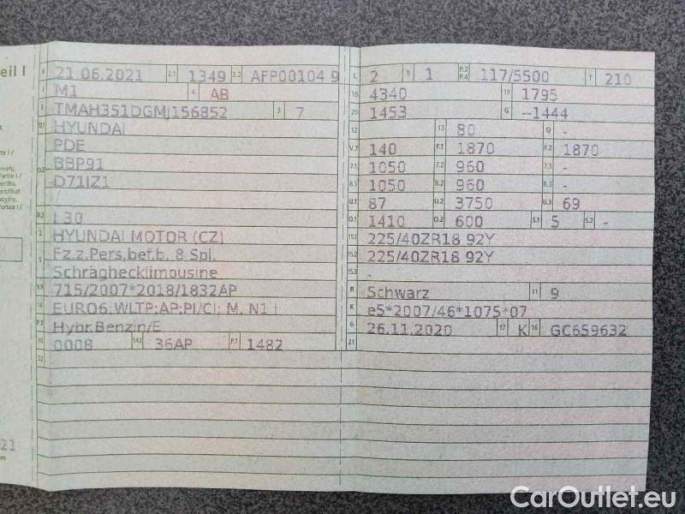 eil I
21.06.2021 2.1 1349 2.2 AFP00104 9
M1 4 AB
TMAH351DGMJ156852 3 7
HYUNDAI
PDE
BBP91
D71IZ1
I 30
HYUNDAI MOTOR (CZ)
Fz.z.Pers.bef.b. 8 Spl.
Schräghecklimousine
715/2007*2018/1832AP
EURO6;WLTP;AP;PI/CI; M, N1 I
Hybr.Benzin/E
0008 36AP 1482
L 2 9 1 P.2 P.4 117/5500 T 210
18 4340 19 1795
20 1453 G --1444
12 - 13 80 Q -
V.7 140 F.1 1870 F.2 1870
7.1 1050 7.2 960 -
8.1 1050 8.2 960 -
U.1 87 U.2 3750 U.3 69
O.1 1410 O.2 600 S.1 5 S.2 -
15.1 225/40ZR18 92Y
15.2 225/40ZR18 92Y
15.3 -
R Schwarz 11 9
K e5*2007/46*1075*07
6 26.11.2020 17 K 16 GC659632
21
21
CarOutlet.eu